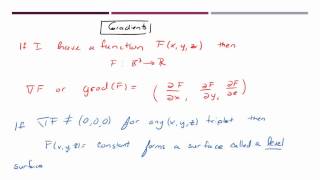 Gradients
If I have a function F(x,y,z) then
F : R³ → R
∇F or grad(F) = (∂F/∂x, ∂F/∂y, ∂F/∂z)
If ∇F ≠ (0,0,0) for any (x,y,z) triplet then
F(x,y,z) = constant forms a surface called a level
surface